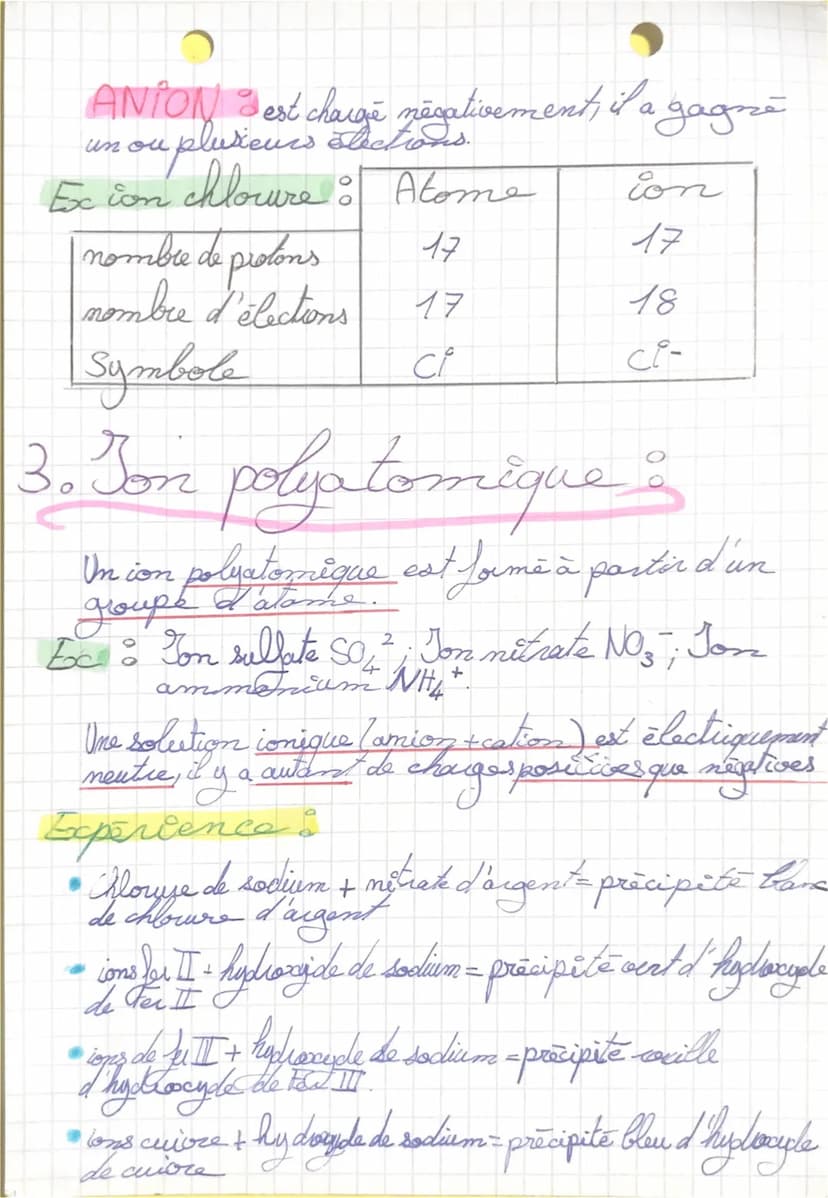 ANION : est chargé négativement, il a gagné
un ou plusieurs élections.
Ex ion chlorure : Atome ion
nombre de protons 17 17
nombre d'élections 17 18
Symbole Ci Ci-
3. Ion polyatomique :
Un ion polyatomique est formé à partir d'un
groupe d'atome.
Ex : Ion sulfate SO₄²; Ion nitrate NO₃⁻; Ion
ammonium NH₄⁺.
Une solution ionique (amion + cation) est électriquement
neutre, il y a autant de charges positives que négatives
Expérience :
• Chlorure de sodium + nitrate d'argent = précipité blanc
de chlorure d'argent
• ions fer II + hydroxyde de sodium = précipité vert d'hydroxyde
de Fer II
• ions de fer III + hydroxyde de sodium = précipité rouille
d'hydroxyde de Fer III.
• ions cuivre + hydroxyde de sodium = précipité bleu d'hydroxyde
de cuivre